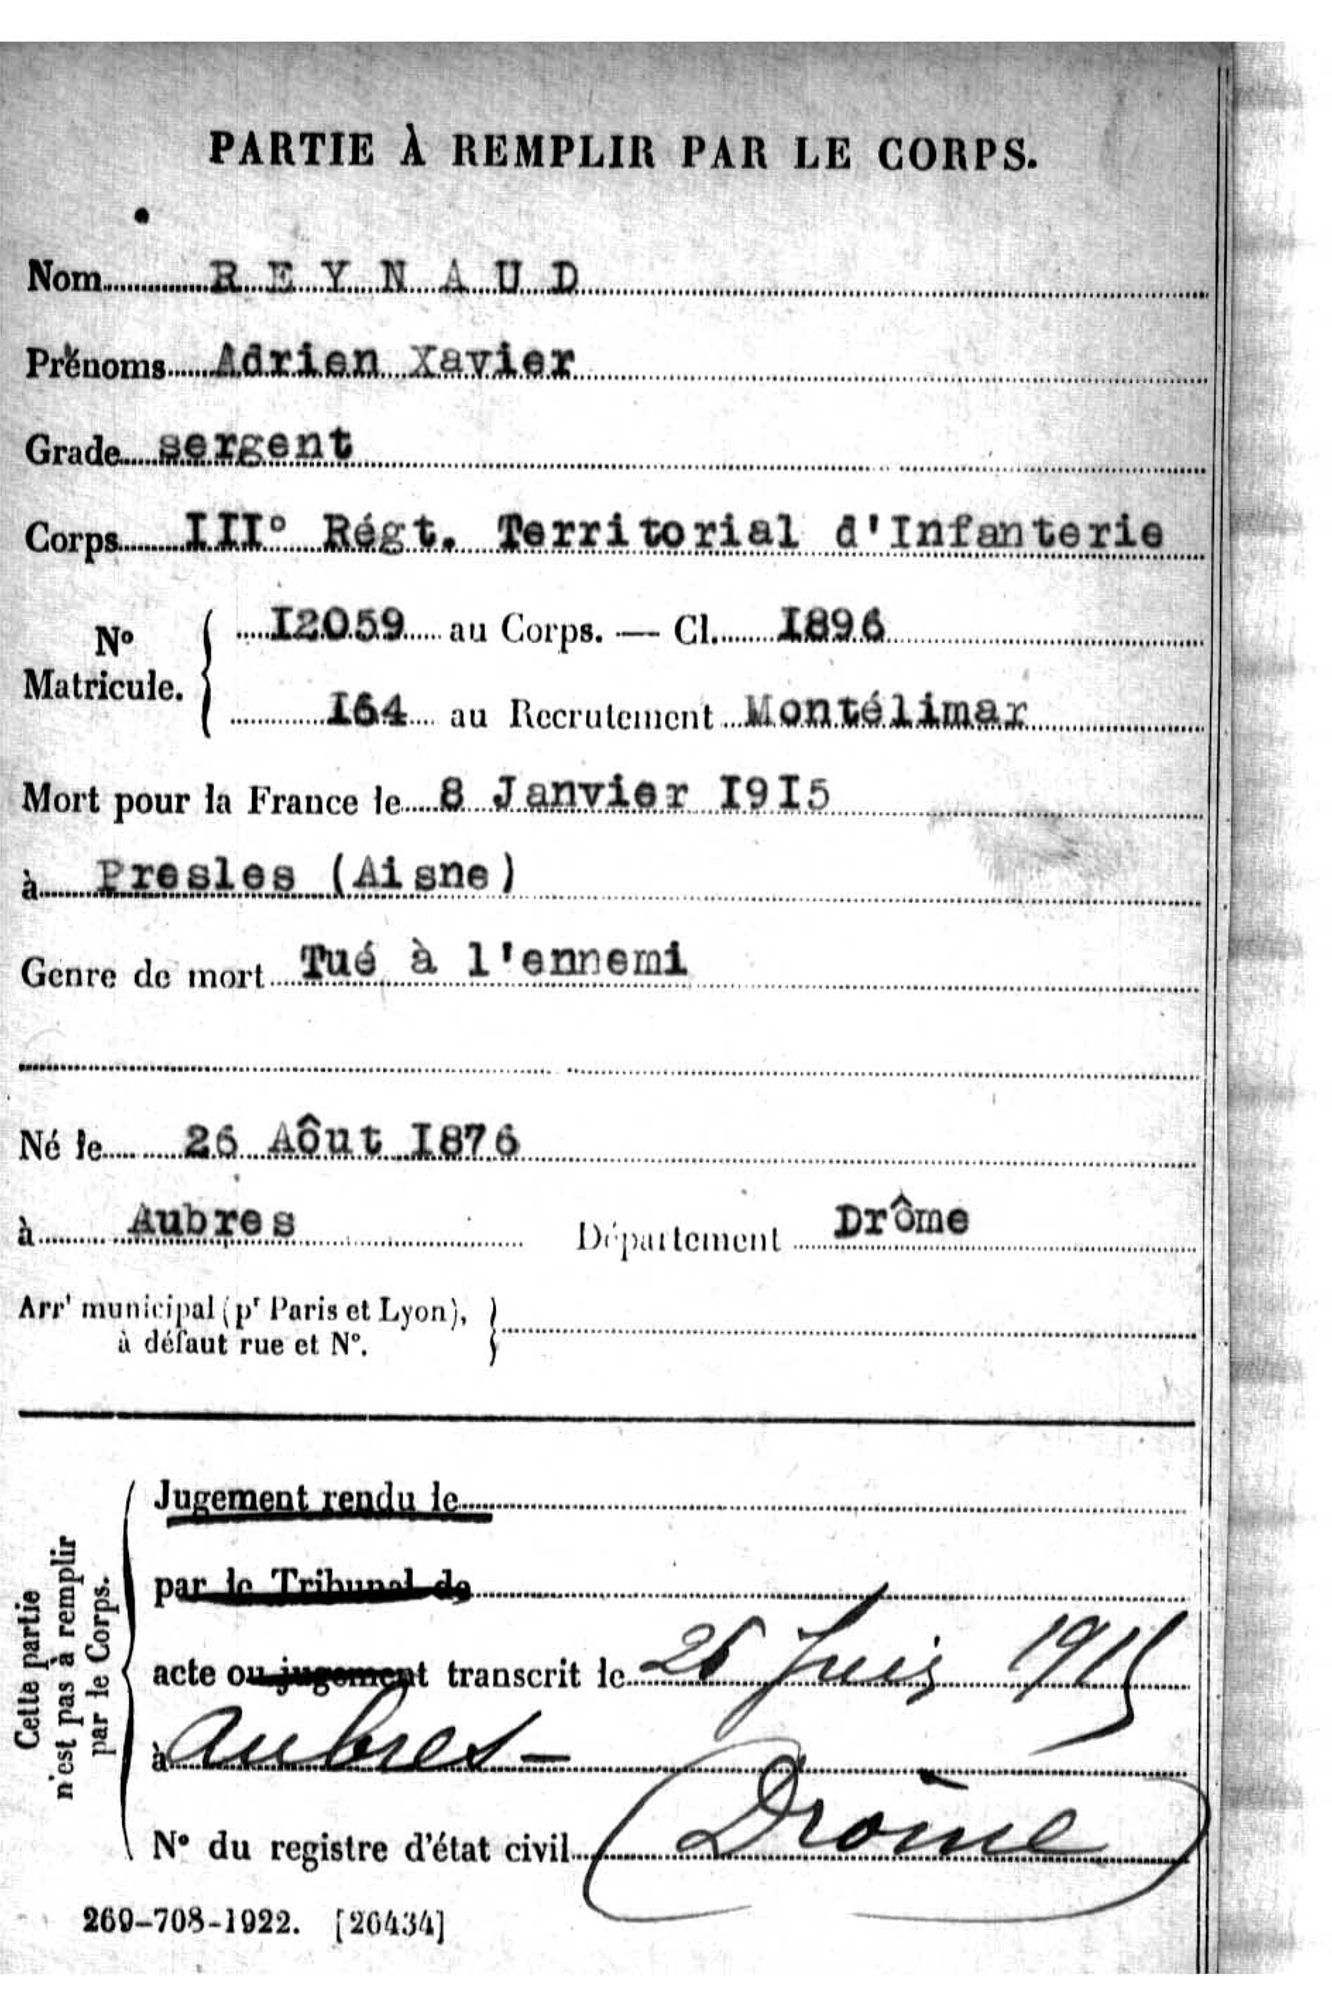 PARTIE À REMPLIR PAR LE CORPS.
Nom REYNAUD
Prénoms Adrien Xavier
Grade sergent
Corps III° Régt. Territorial d'Infanterie
N° Matricule. { I2059 au Corps. — Cl. I896
I64 au Recrutement Montélimar
Mort pour la France le 8 Janvier I9I5
à Presles (Aisne)
Genre de mort Tué à l'ennemi
Né le 26 Aôut I876
à Aubres Département Drôme
Arrt municipal (pr Paris et Lyon), à défaut rue et N°. }
Cette partie n'est pas à remplir par le Corps.
Jugement rendu le
par le Tribunal de
acte ou jugement transcrit le 26 Juin 1915
à Aubres —
N° du registre d'état civil (Drôme)
269-708-1922. [26434]